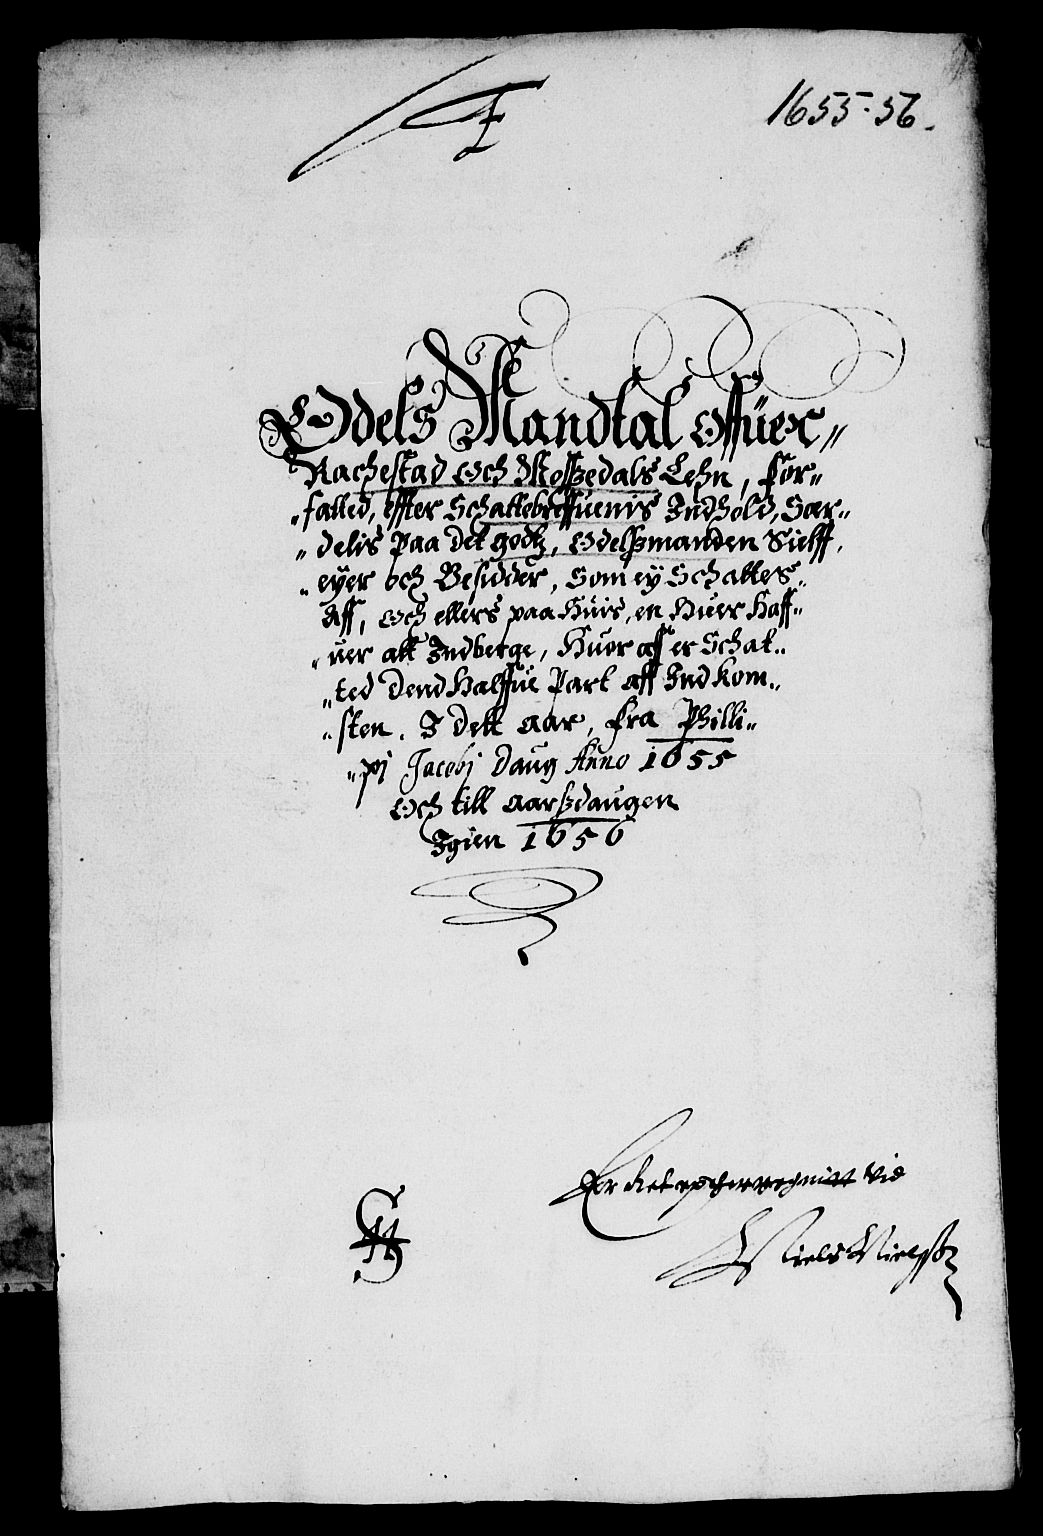 1655-56.
Odels Mandtal offuer,,
Rachestad Och Moßedals Lehn, for,,
,,falled, effter Schattebreffuenis Indhold, Sær,,
,,delis paa det godtz, Odelßmanden Sielff,
,,eyer och Besidder, Som ey Schattes,,
Aff, Och ellers paa Huis, en Huer Haff,,
,,uer att Indberge, Huor aff er Schat,,
,,ted Dend Halffue Part aff Ind Kom,,
,,sten. I dett Aar, fra Philli,,
,,pj Jacobj Daug Anno 1655
Och till Aarßdaugen
Igien 1656
Er ret vid
Niels Nielßøn